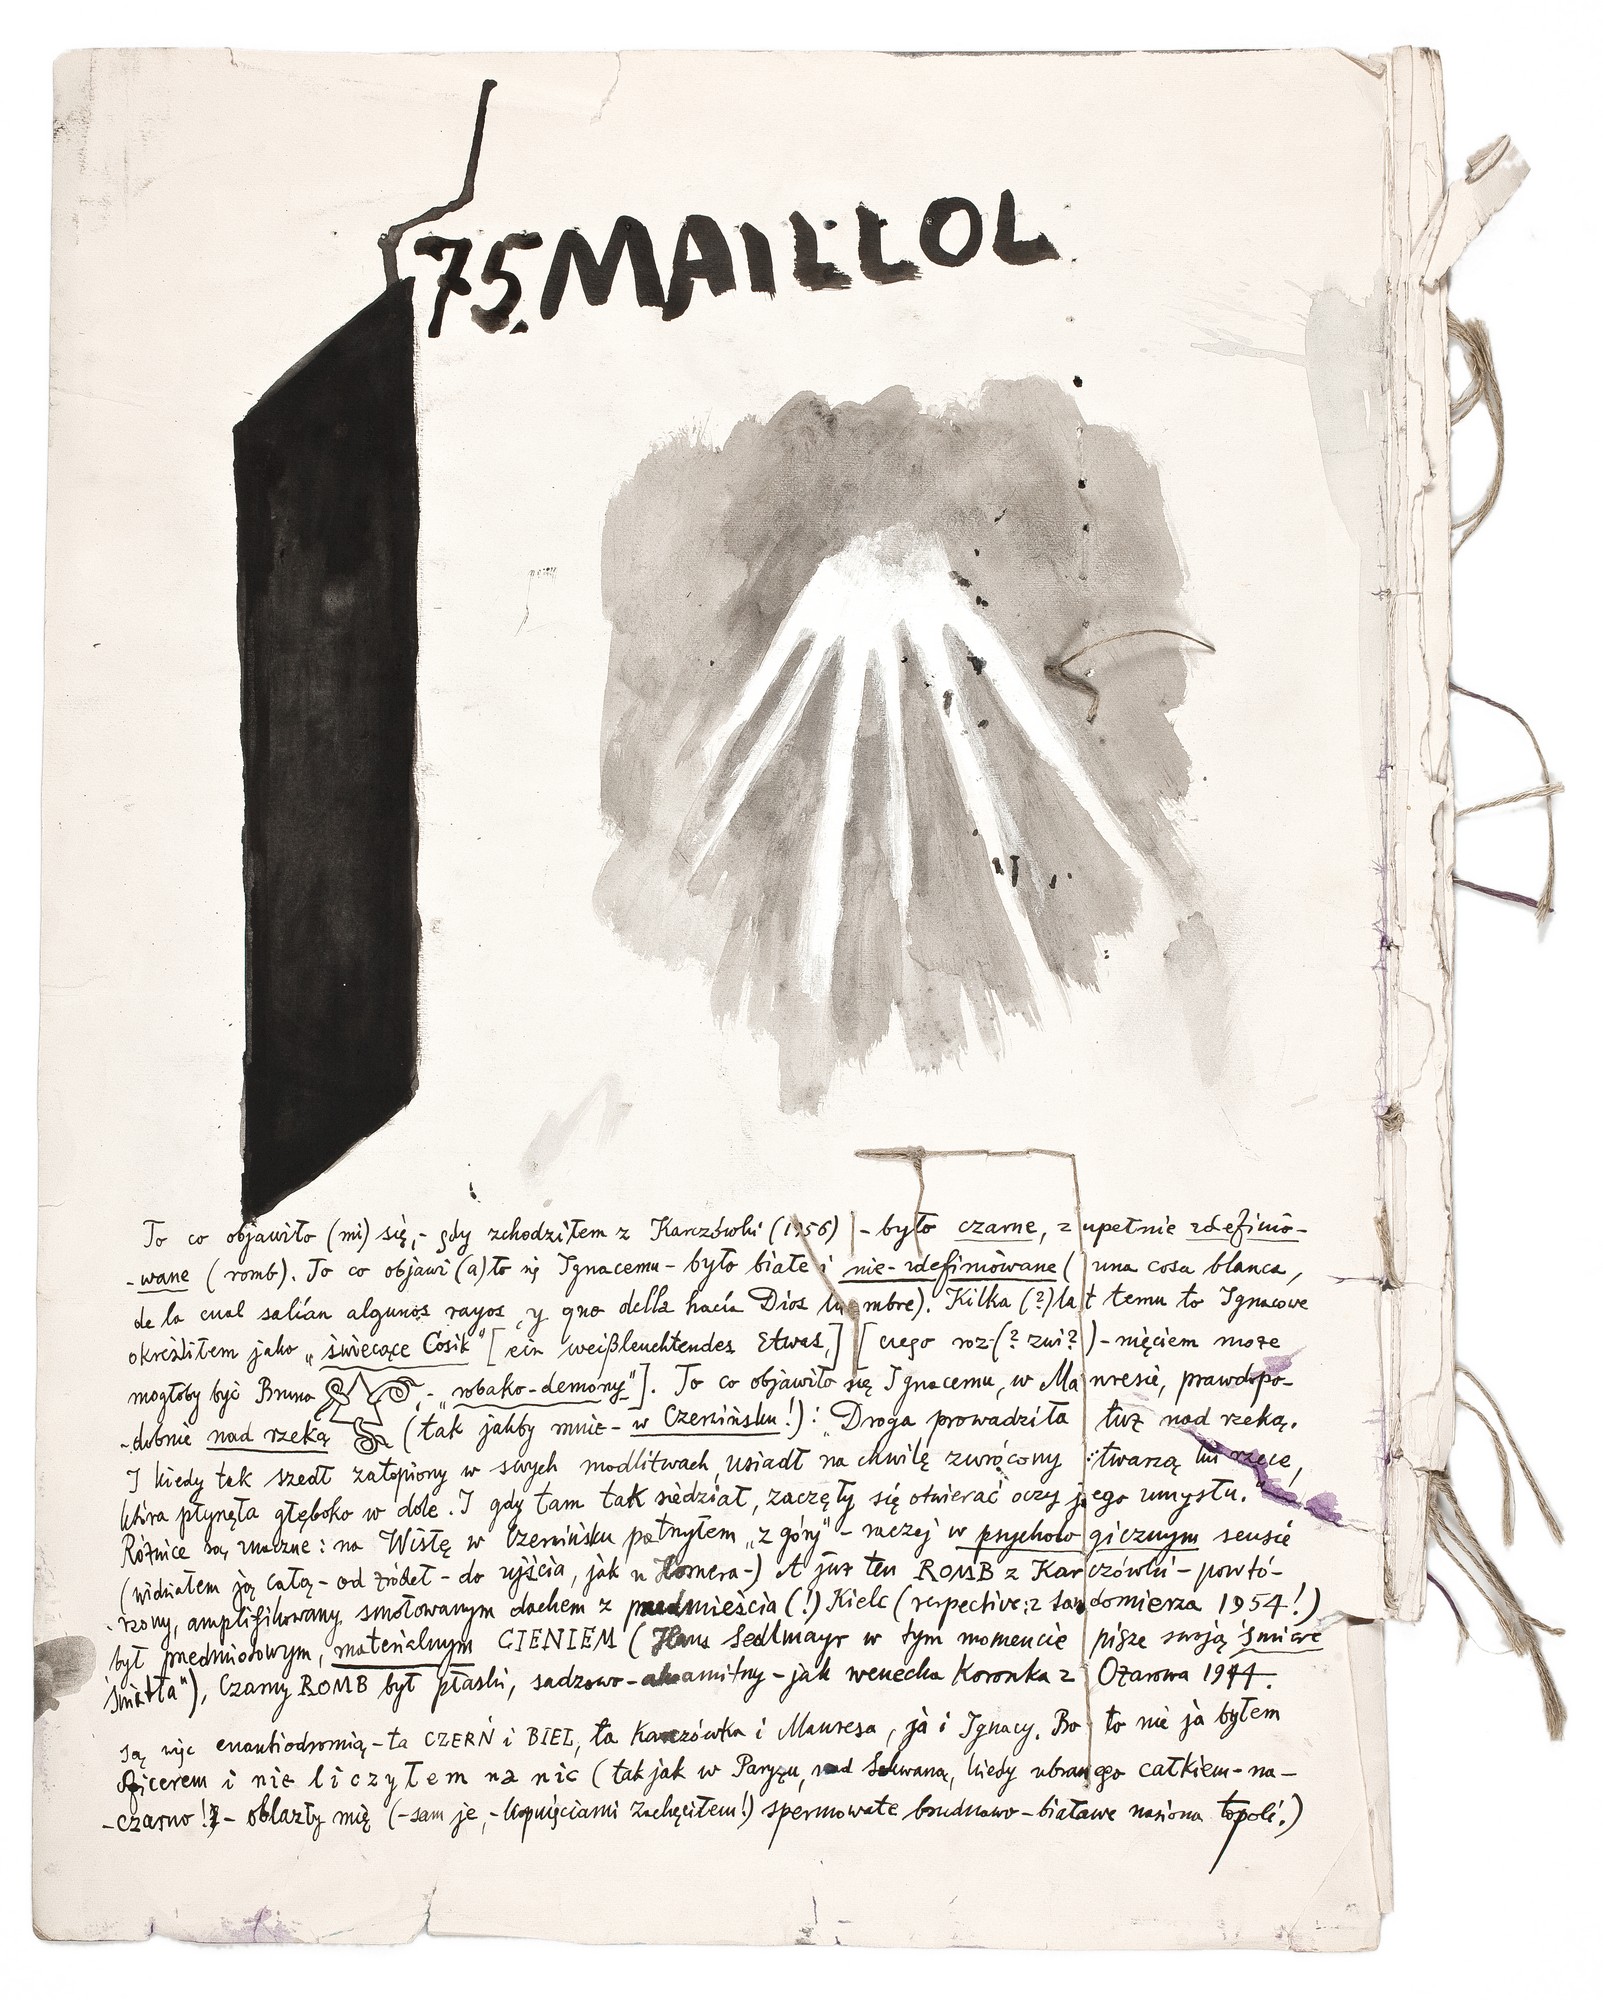 75. MAILLOL
To co objawiło (mi) się,- gdy zchodziłem z Karczówki (1956) - było czarne, zupełnie zdefinio-
-wane (romb). To co objawi(a)ło się Ignacemu - było białe i nie-zdefiniowane (una cosa blanca,
de la cual salían algunos rayos, y que della hacía Dios lumbre). Kilka (?) lat temu to Ignacowe
określiłem jako „świecące Cosik" [ein weißleuchtendes Etwas,] [czego roz-(? zwi?)-nięciem może
mogłoby być Bruna - „robako-demony"]. To co objawiło się Ignacemu, w Manresie, prawdopo-
-dobnie nad rzeką (tak jakby mnie - w Czerwińsku!): „Droga prowadziła tuż nad rzeką.
I kiedy tak szedł zatopiony w swych modlitwach, usiadł na chwilę zwrócony twarzą ku rzece,
która płynęła głęboko w dole. I gdy tam tak siedział, zaczęły się otwierać oczy jego umysłu."
Różnice są znaczne: na Wisłę w Czerwińsku patrzyłem „z góry" - raczej w psychologicznym sensie
(widziałem ją całą - od źródeł - do ujścia, jak u Homera-) A już ten ROMB z Karczówki - powtó-
-rzony, amplifikowany smołowanym dachem z przedmieścia (!) Kielc (respective: z Sandomierza 1954!)
był przedmiotowym, materialnym CIENIEM (Hans Sedlmayr w tym momencie pisze swoją „Śmierć
światła"), Czarny ROMB był płaski, sadzowo-aksamitny - jak wenecka Koronka z Ożarowa 1944.
Są więc enantiodromią - ta CZERŃ i BIEL, ta Karczówka i Manresa, ja i Ignacy. Bo to nie ja byłem
oficerem i nie liczyłem na nic (tak jak w Paryżu, nad Sekwaną, kiedy ubranego całkiem-na-
-czarno!?- oblazły mię (-sam je, - zachęciłem!) spermowate brudnawo-białawe nasiona topoli.)